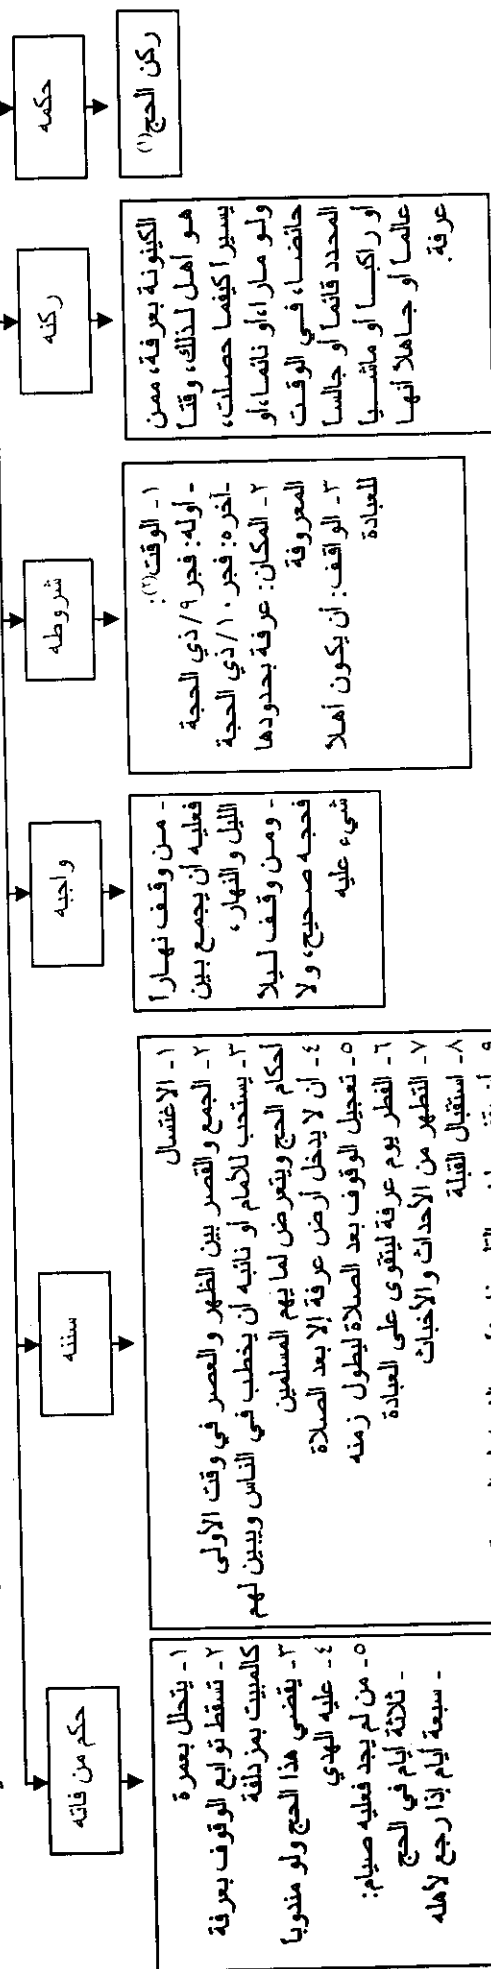 حكمه
ركن الحج(١)
ركنه
الكينونة بعرفة، ممن
هو أهل لذلك، وقتا
يسيرا كيفما حصلت،
ولو مارا، أو نائما، أو
حائضا، في الوقت
المحدد قائما أو جالسا
أو راكبا أو ماشيا
عالما أو جاهلا أنها
عرفة
شروطه
١- الوقت(٢):
- أوله: فجر ٩/ ذي الحجة
- آخره: فجر ١٠/ ذي الحجة
٢- المكان: عرفة بحدودها
المعروفة
٣- الواقف: أن يكون أهلا
للعبادة
واجبه
- من وقف نهارا
فعليه أن يجمع بين
الليل والنهار،
- ومن وقف ليلا
فحجه صحيح، ولا
شيء عليه
سننه
١- الاغتسال
٢- الجمع والقصر بين الظهر والعصر في وقت الأولى
٣- يستحب للامام أو نائبه أن يخطب في الناس ويبين لهم
أحكام الحج ويتعرض لما يهم المسلمين
٤- أن لا يدخل أرض عرفة إلا بعد الصلاة
٥- تعجيل الوقوف بعد الصلاة ليطول زمنه
٦- الفطر يوم عرفة ليتقوى على العبادة
٧- التطهر من الأحداث والأخباث
٨- استقبال القبلة
٩
حكم من فاته
١- يتحلل بعمرة
٢- تسقط توابع الوقوف بعرفة
كالمبيت بمزدلفة
٣- يقضي هذا الحج ولو مندوبا
٤- عليه الهدي
٥- من لم يجد فعليه صيام:
- ثلاثة أيام في الحج
- سبعة أيام إذا رجع لأهله